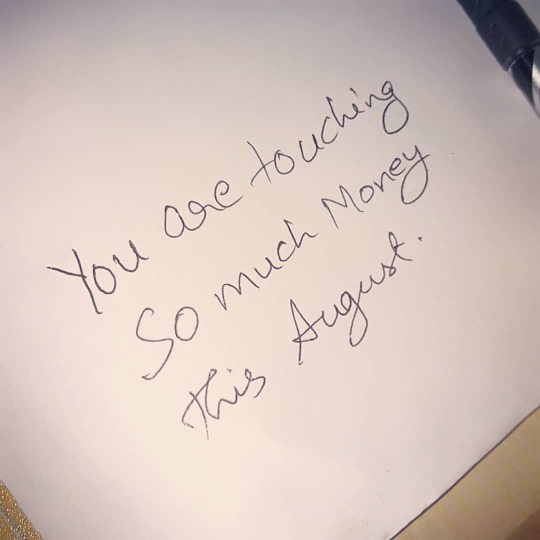 You are touching
So much Money
this August.